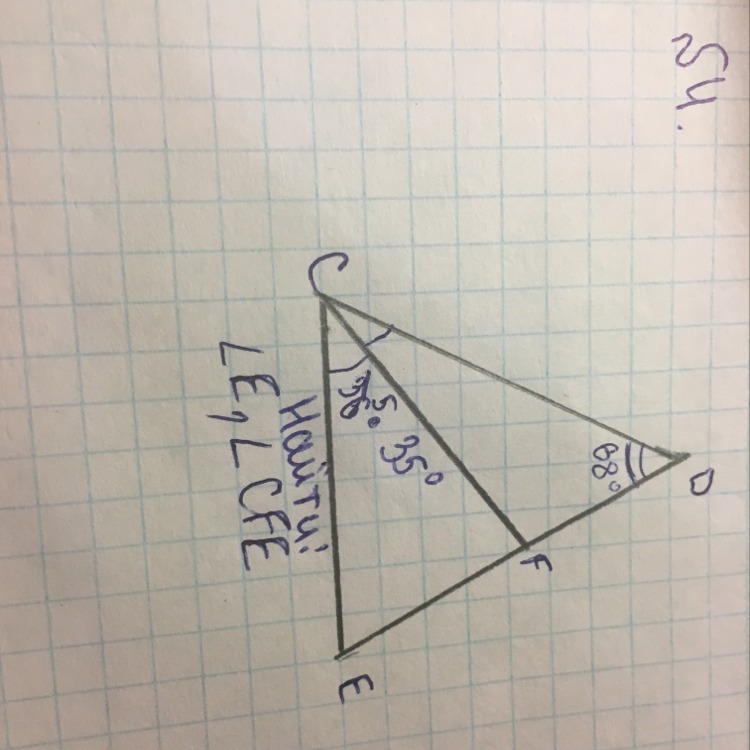 54.
C
D
68°
35°
F
E
Найти:
∠E, ∠CFE